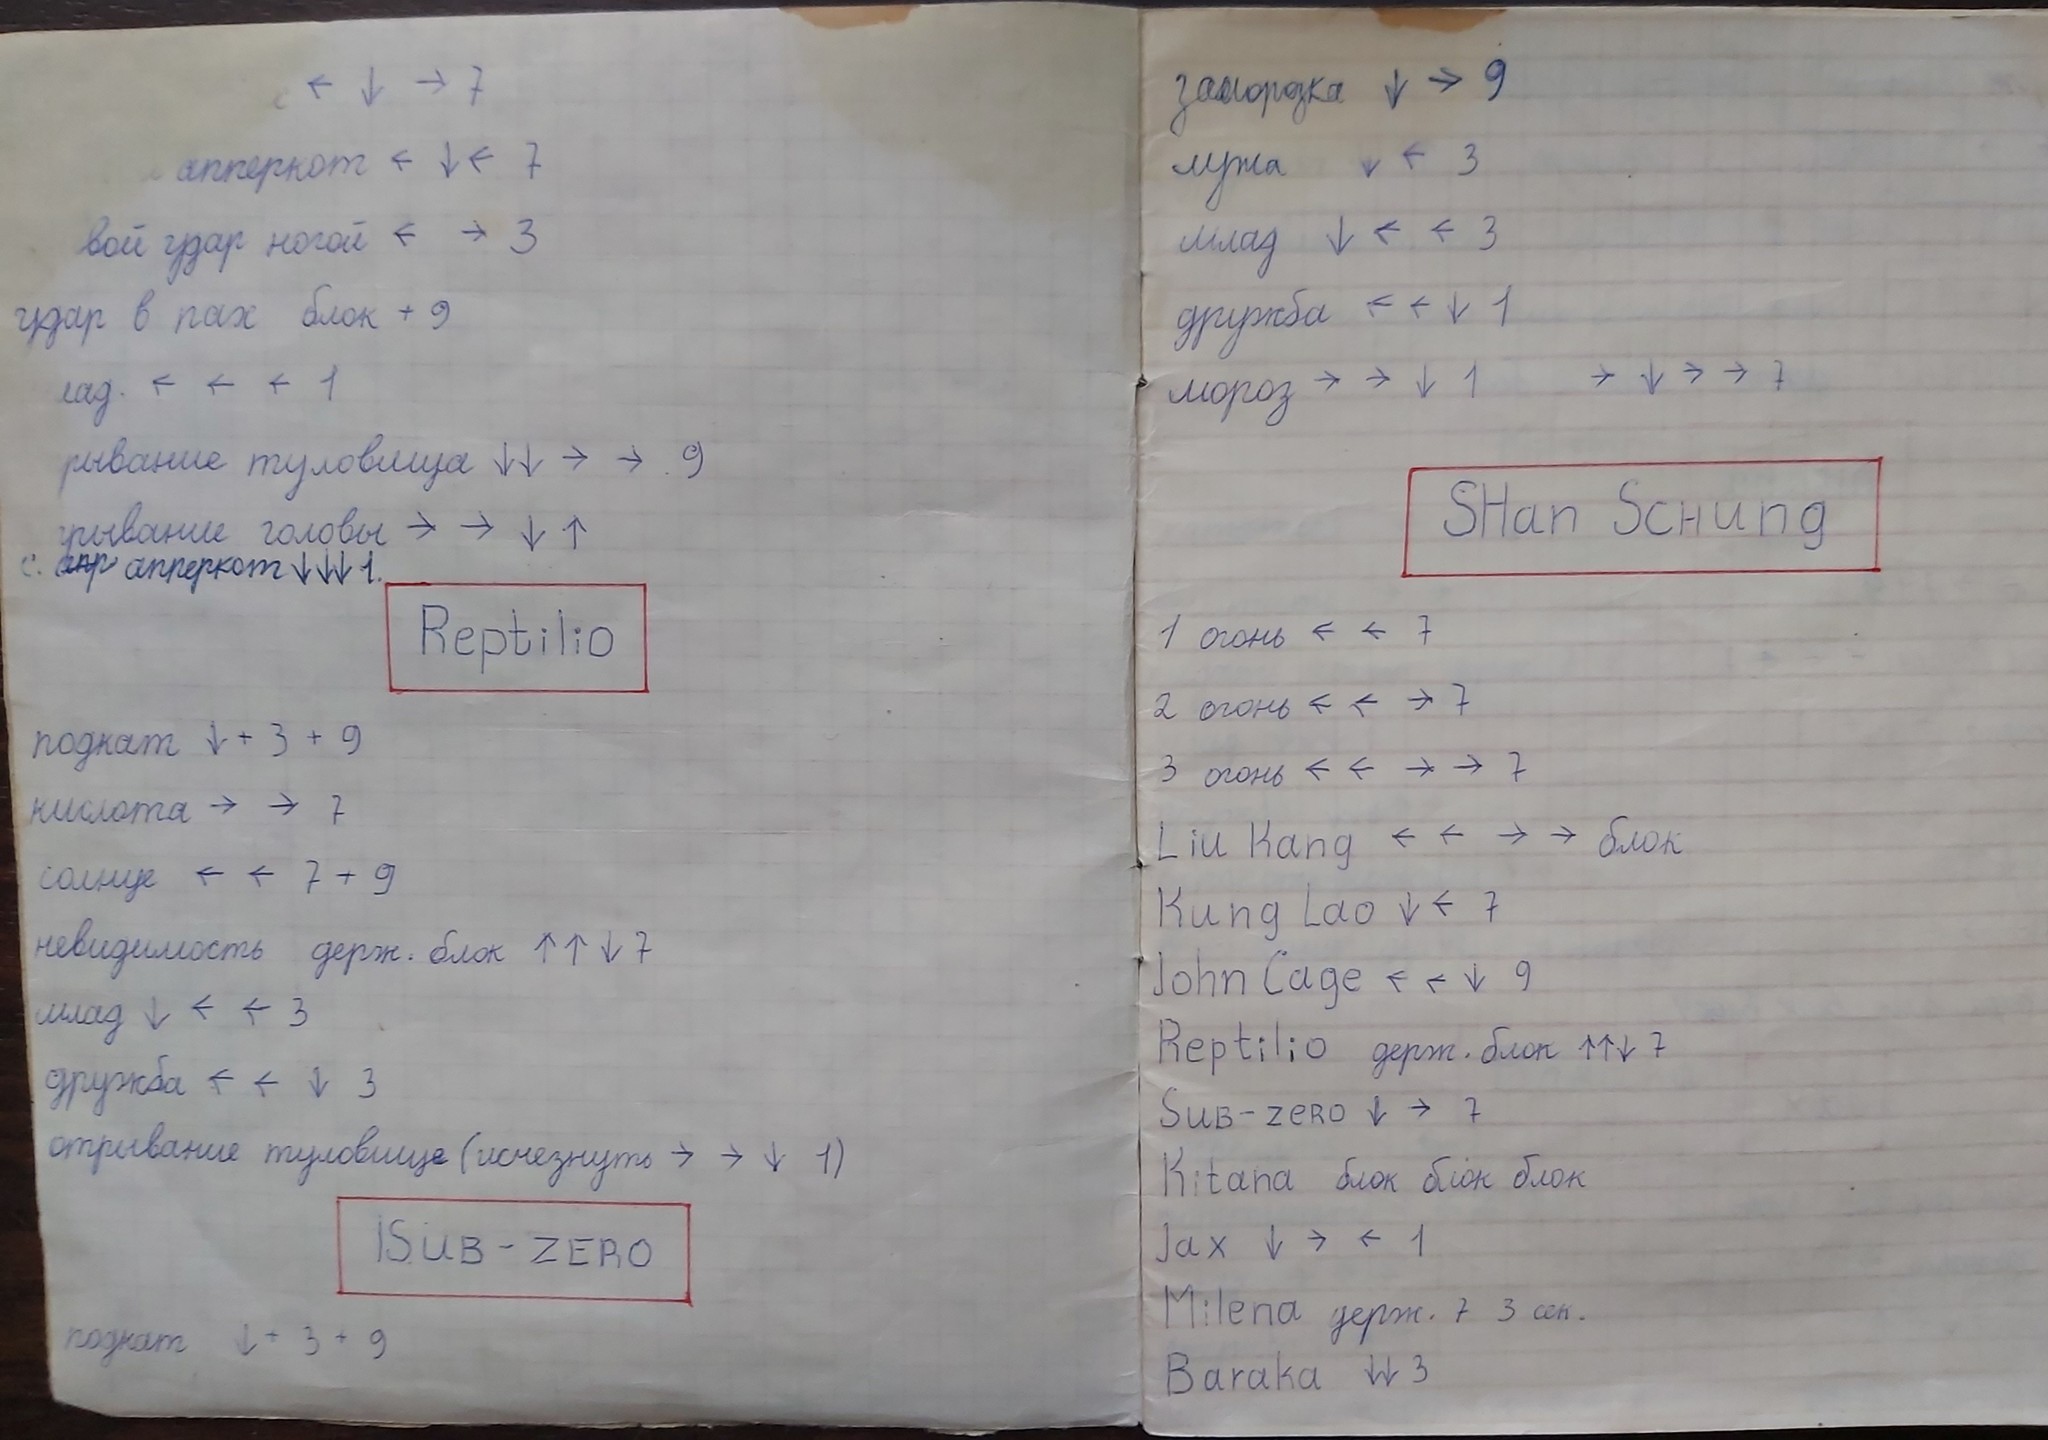 ← ↓ → 7
апперкот ← ↓ ← 7
вой удар ногой ← → 3
удар в пах блок + 9
лад. ← ← ← 1
рывание туловища ↓↓ → → 9
рывание головы → → ↓ ↑
с. апр апперкот ↓↓↓ 1.
Reptilio
подкат ↓ + 3 + 9
кислота → → 7
солнце ← ← 7 + 9
невидимость держ. блок ↑↑↓ 7
млад ↓ ← ← 3
дружба ← ← ↓ 3
отрывание туловище (исчезнуть → → ↓ 1)
SUB-ZERO
подкат ↓ + 3 + 9
заморозка ↓ → 9
лужа ↓ ← 3
млад ↓ ← ← 3
дружба ← ← ↓ 1
мороз → → ↓ 1 → ↓ → → 7
SHan ScHung
1 огонь ← ← 7
2 огонь ← ← → 7
3 огонь ← ← → → 7
Liu Kang ← ← → → блок
Kung Lao ↓ ← 7
John Cage ← ← ↓ 9
Reptilio держ. блок ↑↑↓ 7
SUB-ZERO ↓ → 7
Kitana блок блок блок
Jax ↓ → ← 1
Milena держ. 7 3 сек.
Baraka ↓↓ 3